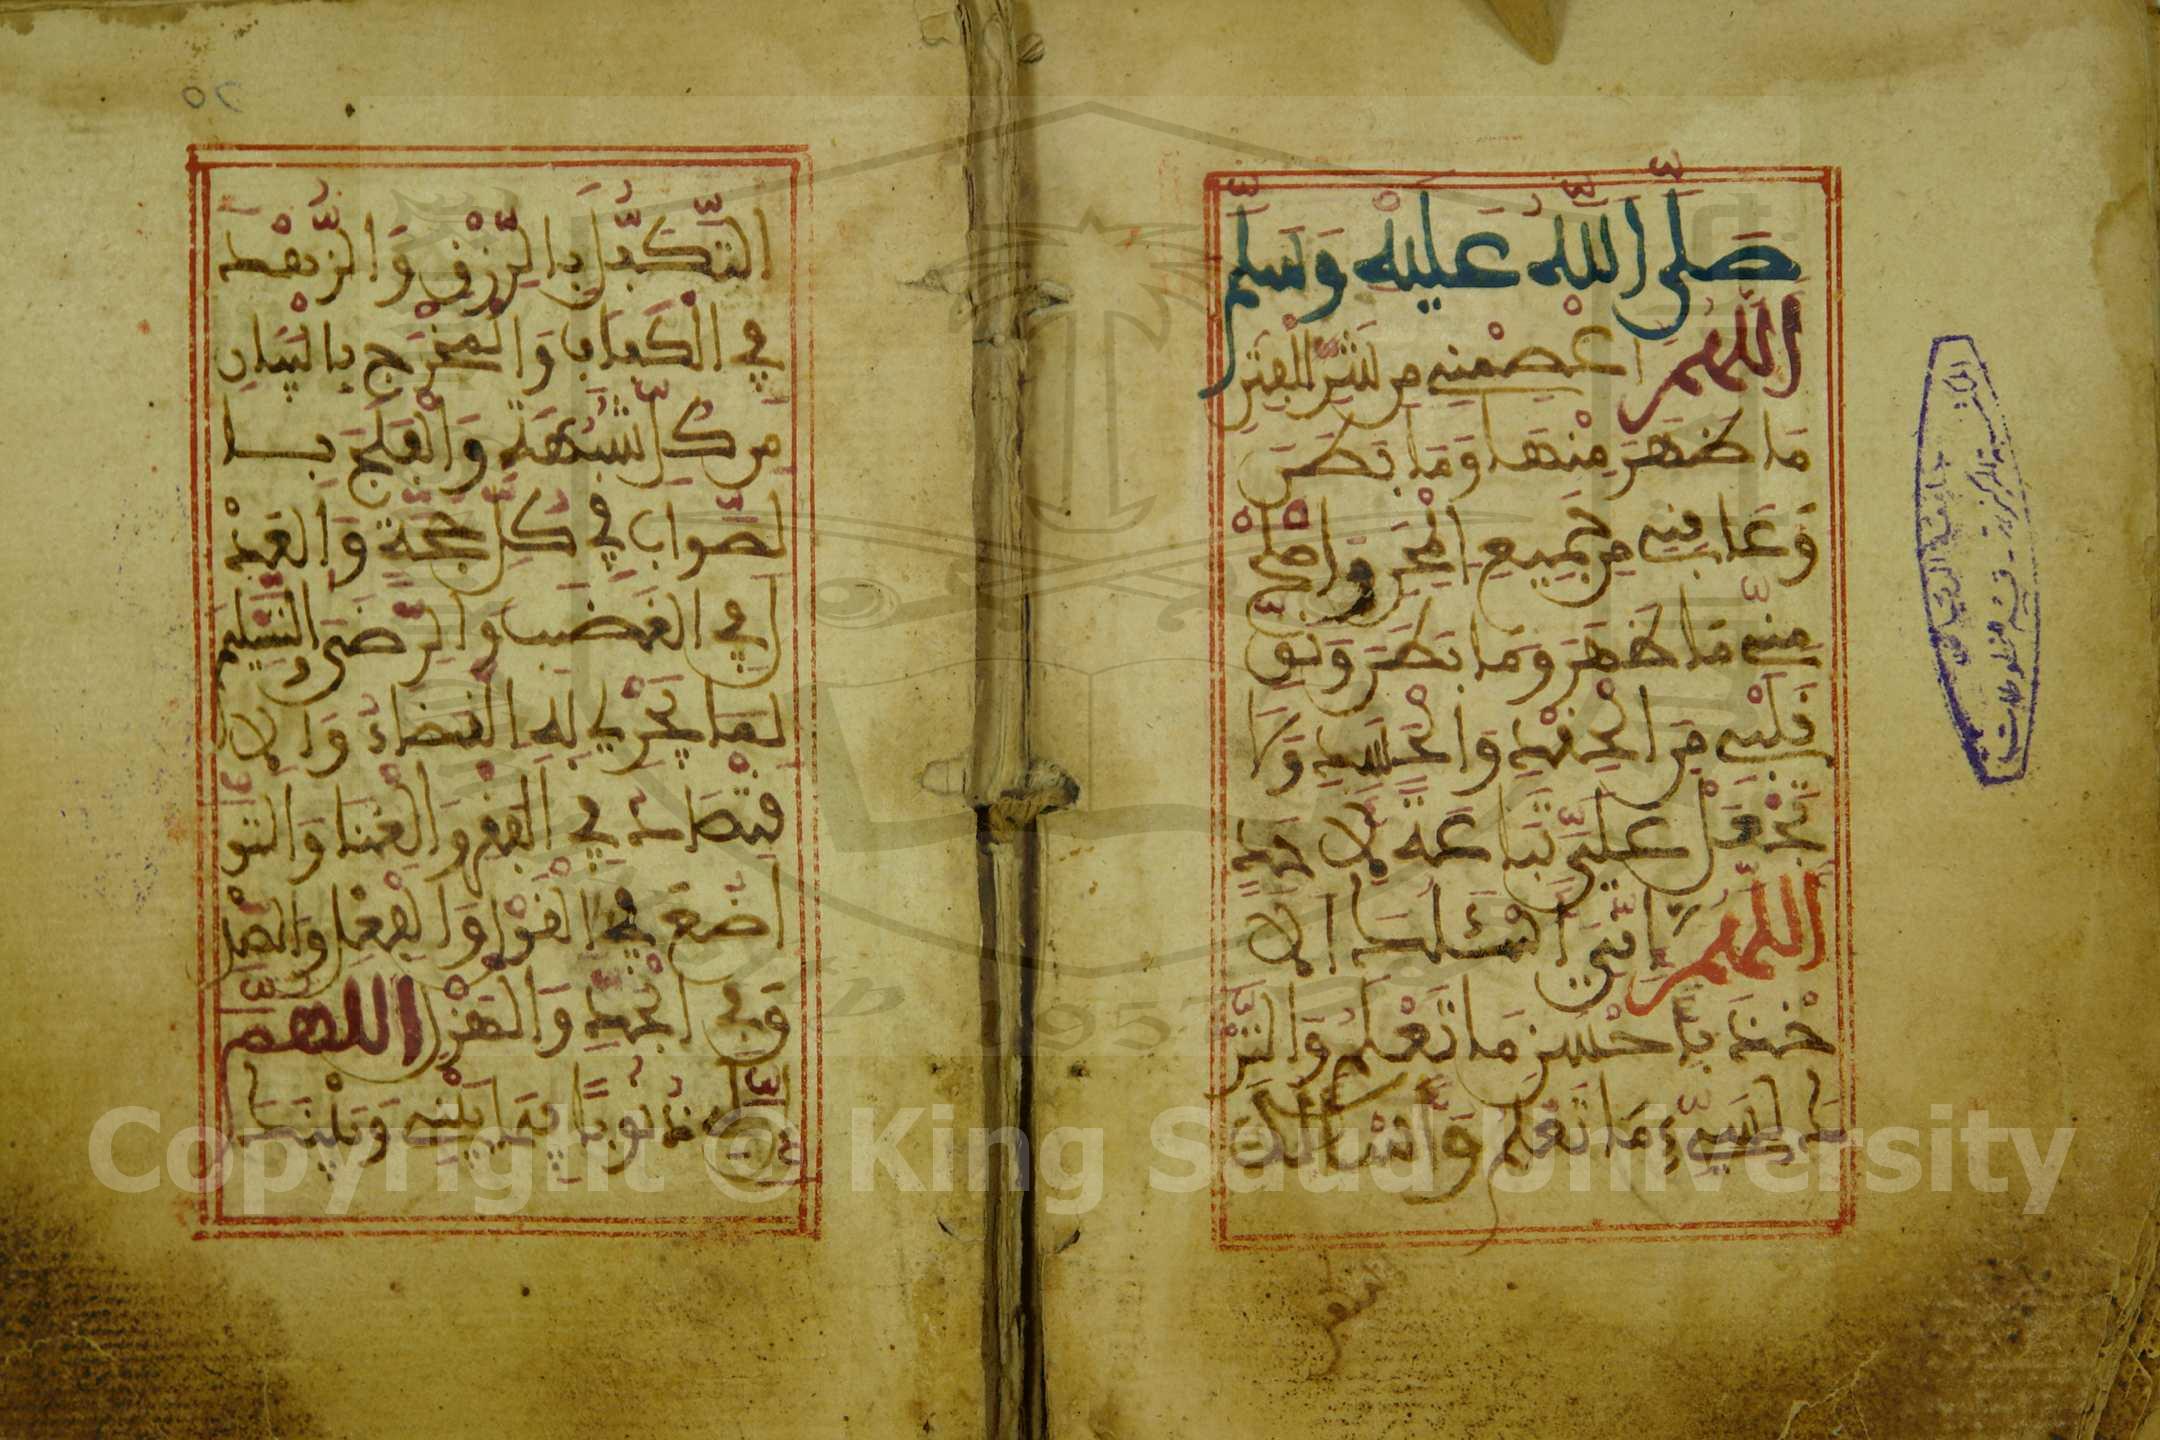 صَلَّى اللَّهُ عَلَيْهِ وَسَلَّمَ
اللَّهُمَّ اعْصِمْنِي مِن شَرِّ الْفِتَنِ
مَا ظَهَرَ مِنْهَا وَمَا بَطَنَ
وَعَافِنِي مِن جَمِيعِ الْمِحَنِ وَاصْلِحْ
مِنِّي مَا ظَهَرَ وَمَا بَطَنَ وَنَقِّ
قَلْبِي مِنَ الْحِقْدِ وَالْحَسَدِ وَلَا
تَجْعَلْ عَلَيَّ تَبَاعَةً لِأَحَدٍ
اللَّهُمَّ إِنِّي أَسْئَلُكَ الا
خْذَ بِأَحْسَنِ مَا تَعْلَمُ وَالتَّرْ
كَ لِسَيِّءِ مَا تَعْلَمُ وَأَسْأَلُكَ
التكفل
التَّكَفُّلَ بِالرِّزْقِ وَالزُّهْدَ
فِي الْكَفَافِ وَالْمَخْرَجَ بِالْبَيَانِ
مِن كُلِّ شُبْهَةٍ وَالْفَلَجَ بِا
لصَّوَابِ فِي كُلِّ حُجَّةٍ وَالْعَدْ
لَ فِي الْغَضَبِ وَالرِّضَى وَالتَّسْلِيمَ
لِمَا يَجْرِي بِهِ الْقَضَاءُ وَالِا
قْتِصَادَ فِي الْفَقْرِ وَالْغِنَا وَالتَّوَ
اضُعَ فِي الْقَوْلِ وَالْفِعْلِ وَالصِّدْ
قَ فِي الْجِدِّ وَالْهَزْلِ اللَّهُمَّ
إِنَّ لِي ذُنُوبًا فِيمَا بَيْنِي وَبَيْنَكَ
جامعة الرياض
المكتبة المركزية - قسم المخطوطات
Copyright © King Saud University
1957